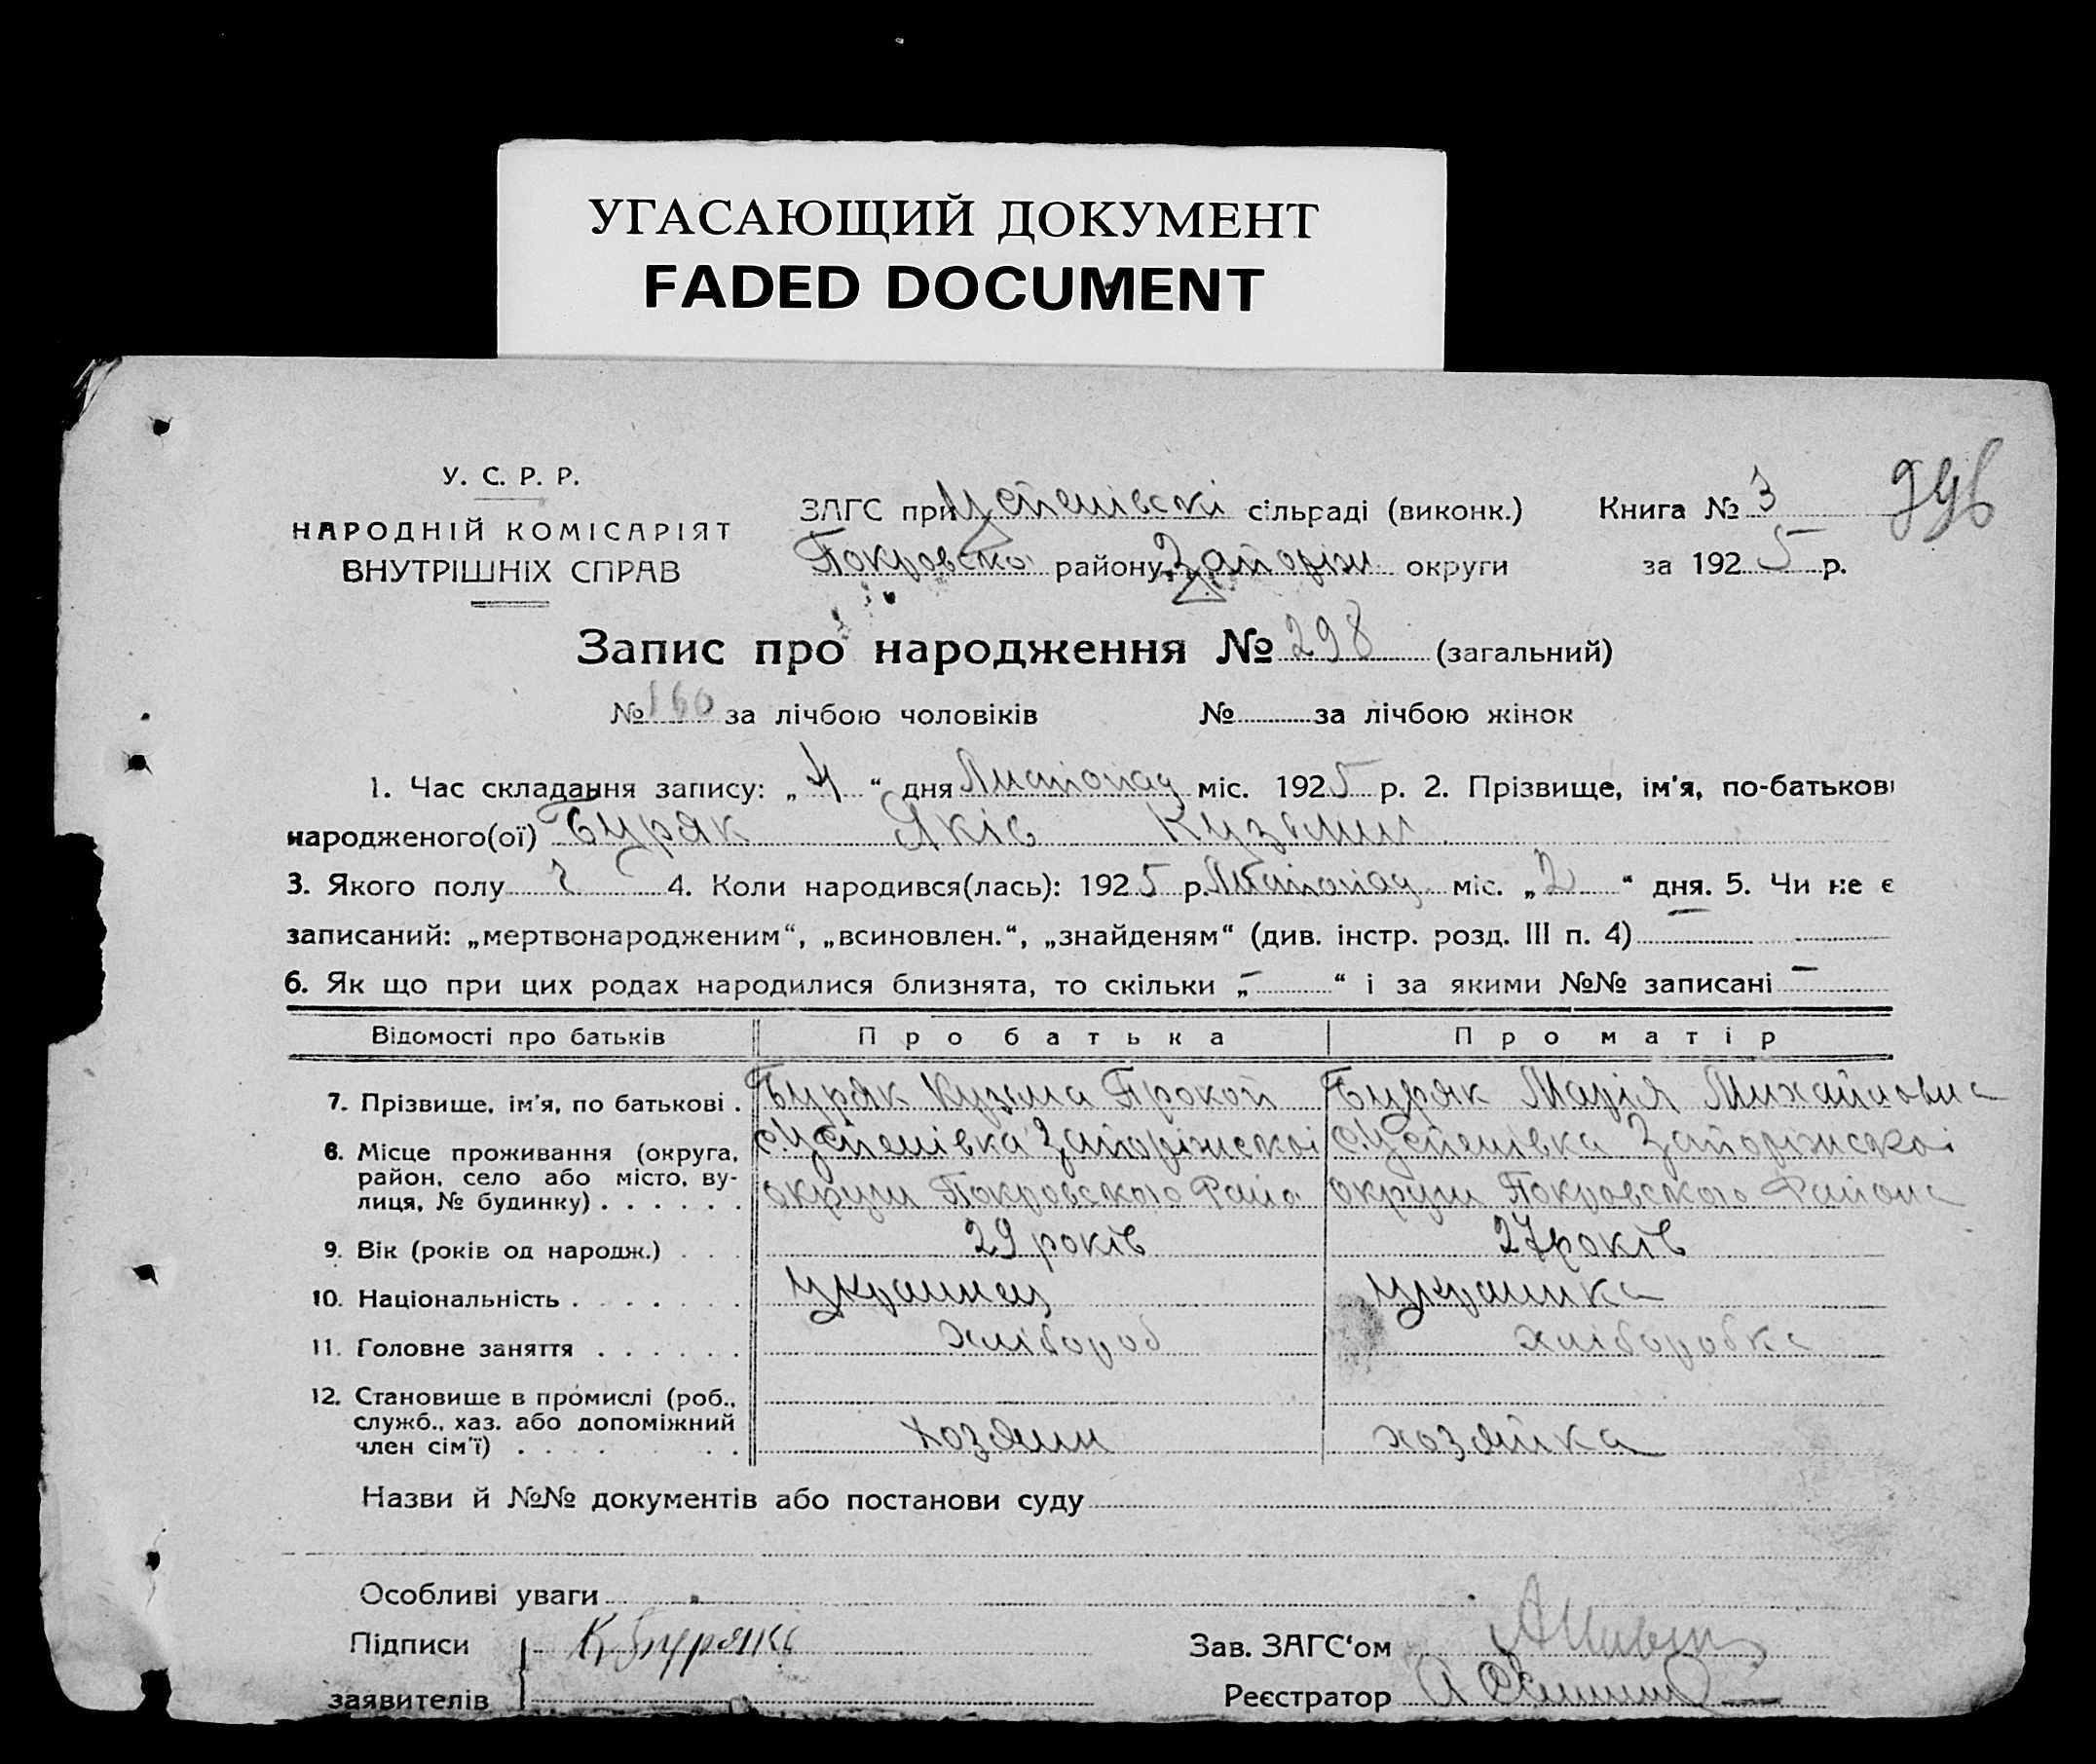 УГАСАЮЩИЙ ДОКУМЕНТ
FADED DOCUMENT
У. С. Р. Р.
НАРОДНІЙ КОМІСАРІЯТ
ВНУТРІШНІХ СПРАВ
ЗАГС при Успенівскі сільраді (виконк.)
Покровско району Запоріж округи
Книга № 3
за 1925 р.
Запис про народження № 298 (загальний)
№ 160 за лічбою чоловіків № за лічбою жінок
1. Час складання запису: „4“ дня Листопад міс. 1925 р. 2. Прізвище, ім'я, по-батькові
народженого(ої) Буряк Яків Кузьмич
3. Якого полу ч 4. Коли народився(лась): 1925 р. Листопад міс. „2“ дня. 5. Чи не є
записаний: „мертвонародженим“, „всиновлен.“, „знайденям“ (див. інстр. розд. III п. 4)
6. Як що при цих родах народилися близнята, то скільки „-“ і за якими №№ записані -
Відомості про батьків Про батька Про матір
7. Прізвище, ім'я, по батькові . Буряк Кузьма Прокоп Буряк Марія Михайловна
8. Місце проживання (округа, с. Успенівка Запоріжскоі с. Успенівка Запоріжскоі
район, село або місто, ву-
лиця, № будинку) . . . . . . округи Покровского Райо округи Покровского Района
9. Вік (років од народж.) . . . 29 років 27 років
10. Національність . . . . . . . украинец украинка
11. Головне заняття . . . . . . хлібороб хліборобка
12. Становище в промислі (роб.,
служб., хаз. або допоміжний
член сім'ї) . . . . . . . хозяин хозяйка
Назви й №№ документів або постанови суду
Особливі уваги
Підписи
заявителів
Зав. ЗАГС‘ом
Реєстратор